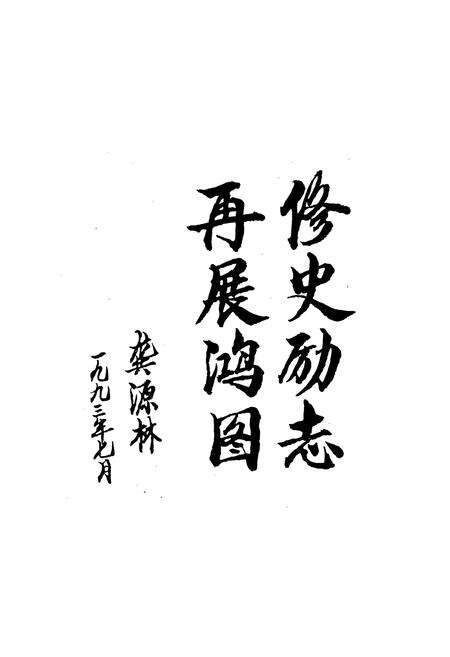 修史励志
再展鸿图
龚源林
一九九三年七月